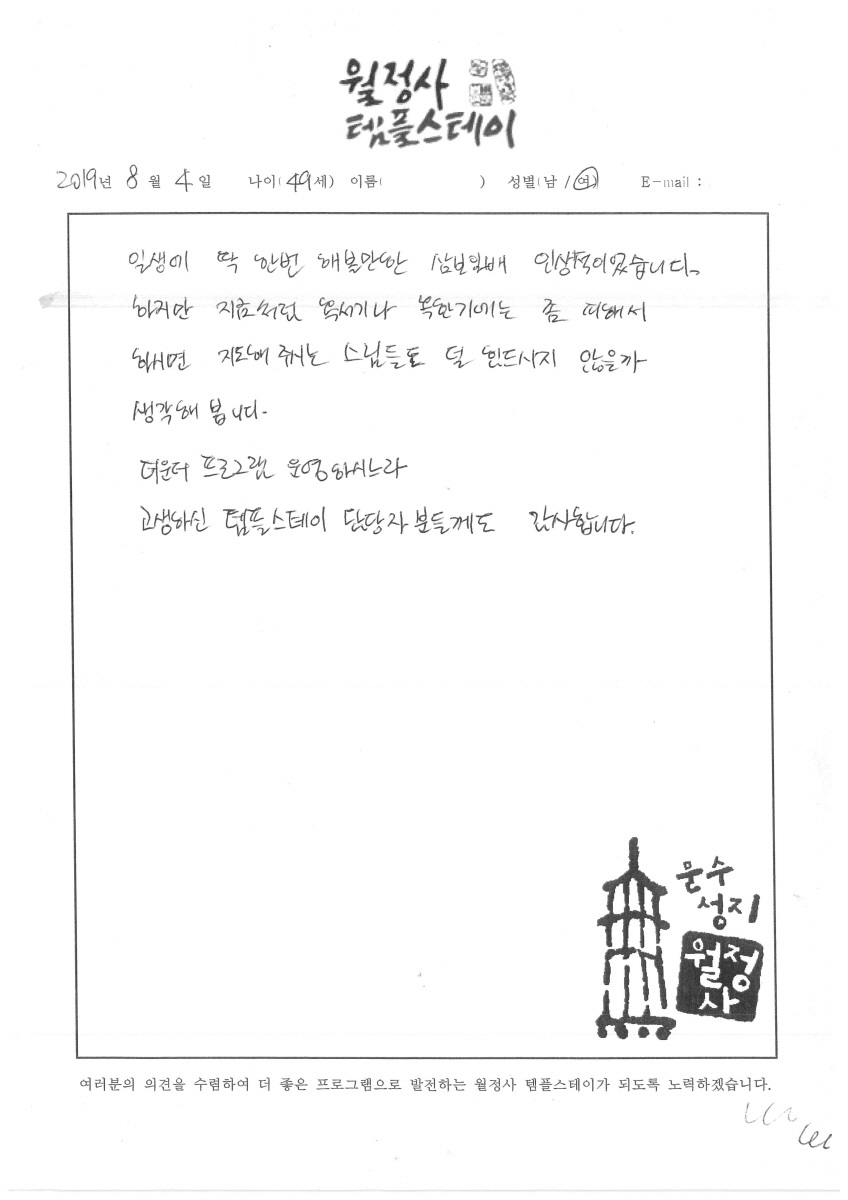 월정사
템플스테이
2019년 8월 4일 나이(49세) 이름( ) 성별(남/여) E-mail :
일생에 딱 한번 해볼만한 삼보일배 인상적이었습니다.
하지만 지효처럼 혹서기나 혹한기에는 좀 피해서
하시면 지도해 주시는 스님들도 덜 힘드시지 않을까
생각해 봅니다.
더운데 프로그램 운영하시느라
고생하신 템플스테이 담당자분들께도 감사합니다.
문수
성지
월정
사
여러분의 의견을 수렴하여 더 좋은 프로그램으로 발전하는 월정사 템플스테이가 되도록 노력하겠습니다.